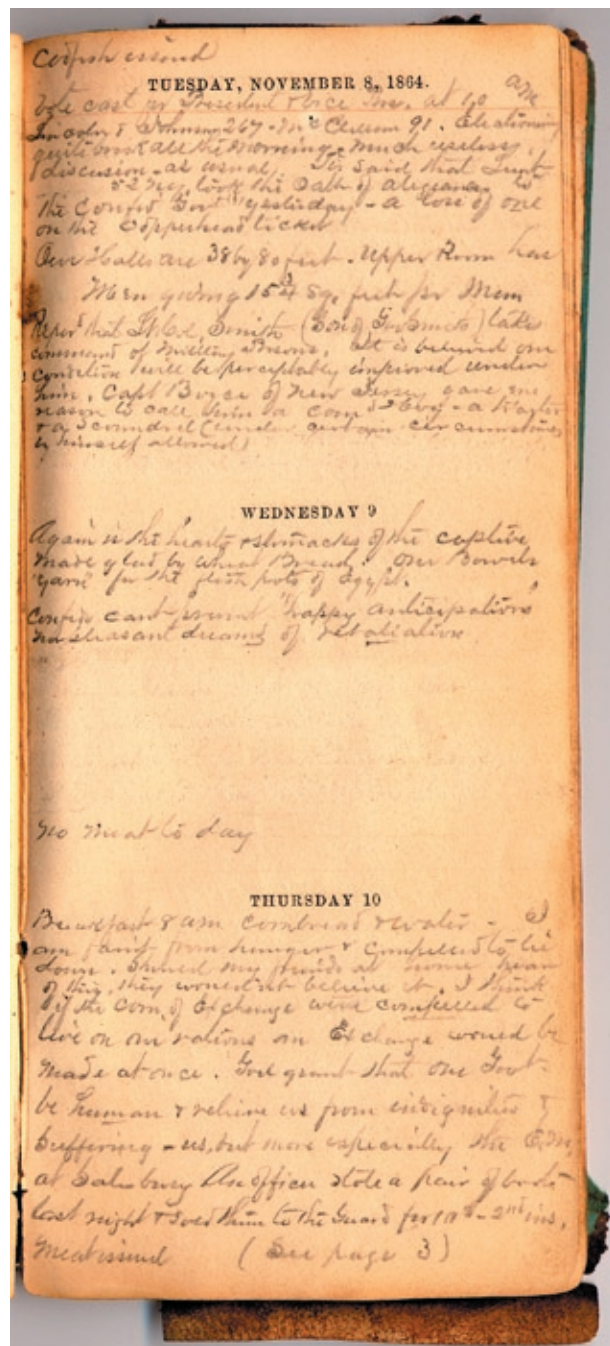 Codfish issued
TUESDAY, NOVEMBER 8, 1864.
Vote cast for President & Vice Pres. at 10 am
Lincoln & Johnson 267 - McClellan 91. Electioning
quite brisk all the morning. Much useless
discusion - as usual. Tis said that Lieut
N.Y. took the Oath of alegiance to
the Confed Govt yesterday - a loss of one
on the Copperhead ticket
Our Halls are 38 by 80 feet. Upper Room has
Men giving sq. feet pr Man
Report that Lt Col. Smith (Son of Gov Smith) takes
command of Military Prisons. It is believed our
Condition will be perceptably improved under
him. Capt Boyce of New Jersey gave me
reason to call him a - a traitor
& a scoundrel (under certain circumstances
by himself allowed)
WEDNESDAY 9
Again is the hearts & stomacks of the captive
made glad by wheat Bread. Our Bowels
"yarn" for the flesh pots of Egypt.
Confeds cant prevent "happy anticipations"
nor pleasant dreams of retaliation
No meat to day
THURSDAY 10
Breakfast 8 am cornbread & water - I
am faint from hunger & compelled to lie
down. Should my friends at home hear
of this, they would not believe it. I think
if the Com. of Exchange were compelled to
live on our rations an Exchange would be
made at once. God grant that our Govt
be human & relieve us from indignities &
suffering - us, but more especially the E.M.
at Salisbury An officer stole a pair of boots
last night & sold them to the Guard for - 2nd ins.
Meat issued (See page 3)